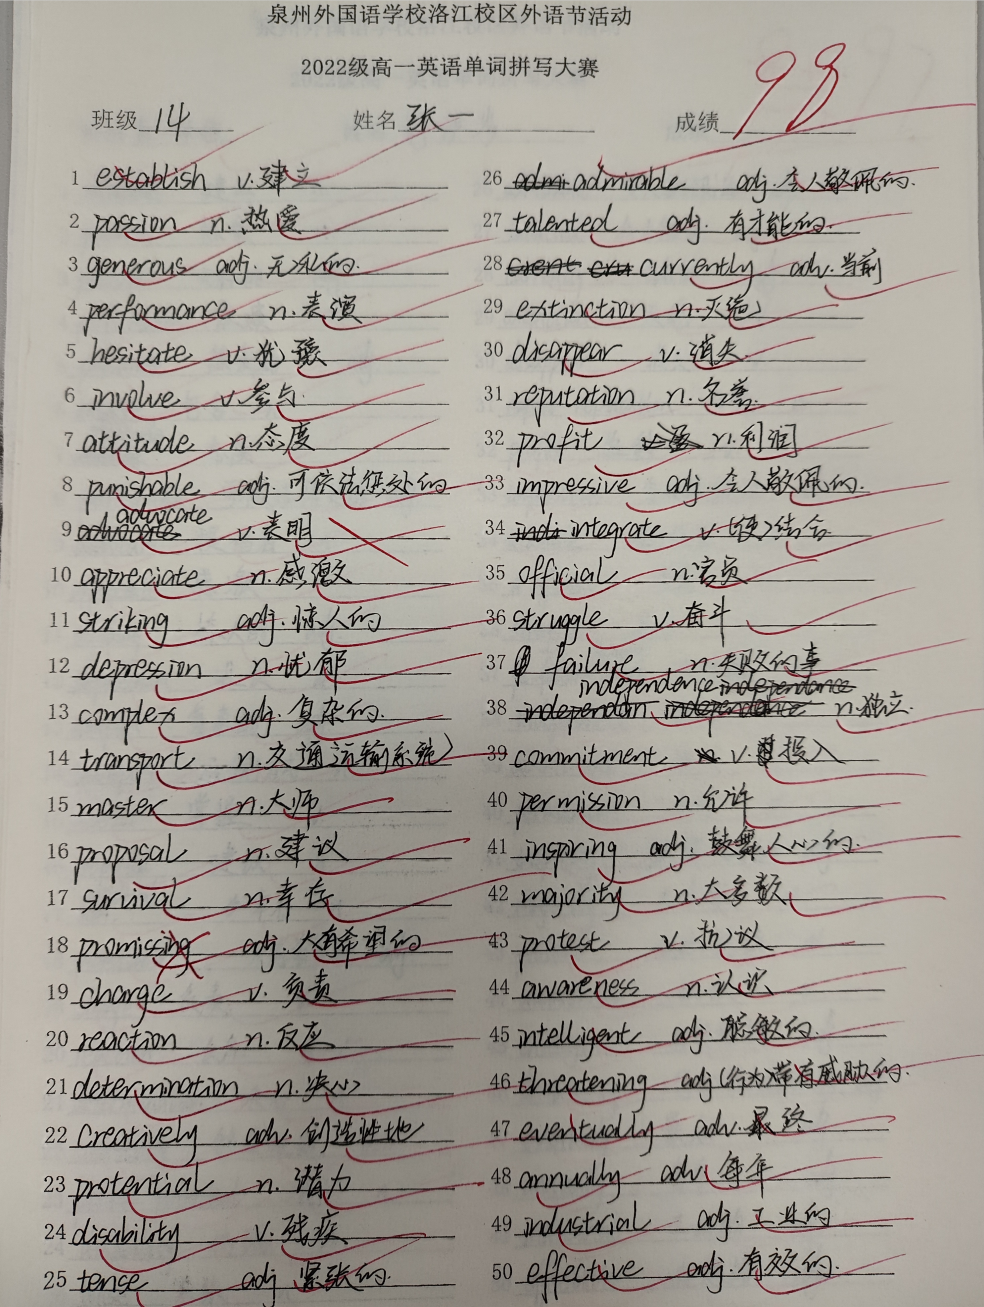 泉州外国语学校洛江校区外语节活动
2022级高一英语单词拼写大赛
班级 14 姓名 张一 成绩 98
1 establish v.建立
2 passion n.热爱
3 generous adj.无私的.
4 performance n.表演
5 hesitate v.犹豫
6 involve v.参与.
7 attitude n.态度
8 punishable adj.可依法惩处的
9 advocate advocate v.表明
10 appreciate n.感激
11 striking adj.惊人的
12 depression n.忧郁
13 complex adj.复杂的.
14 transport n.交通运输系统
15 master n.大师
16 proposal n.建议
17 survival n.幸存
18 promissing adj.大有希望的
19 charge v.负责
20 reaction n.反应
21 determination n.决心
22 creatively adv.创造性地
23 protential n.潜力
24 disability v.残疾
25 tense adj 紧张的.
26 admi admirable adj.令人敬佩的.
27 talented adj.有才能的.
28 crent cru currently adv.当前
29 extinction n.灭绝
30 disappear v.消失
31 reputation n.名誉.
32 profit n.利润
33 impressive adj.令人敬佩的.
34 indi integrate v.(使)结合
35 official n.官员
36 struggle v.奋斗
37 failure n.失败的事
38 independan independance independence independance n.独立.
39 commitment n. v.投入
40 permission n.允许
41 inspiring adj.鼓舞人心的.
42 majority n.大多数
43 protest v.抗议
44 awareness n.认识
45 intelligent adj.聪敏的.
46 threatening adj(行为)带有威胁的.
47 eventually adv.最终
48 annually adv.每年
49 industrial adj.工业的
50 effective adj.有效的.